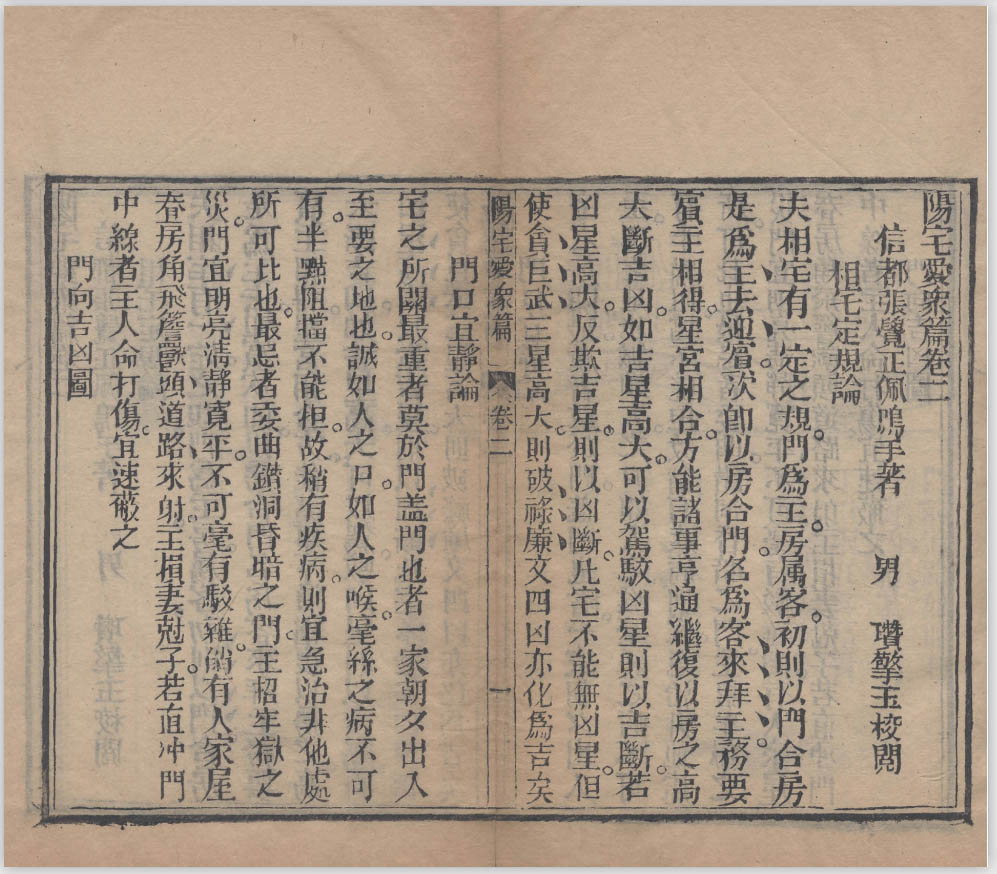 陽宅愛衆篇卷二
信都張覺正佩鳴手著 男 瓚擎玉校閱
相宅定規論
夫相宅有一定之規門爲主房属客初則以門合房
是爲主去迎賓次卽以房合門名爲客來拜主務要
賓主相得星宮相合方能諸事亨通繼復以房之高
大斷吉凶如吉星高大可以駕馭凶星則以吉斷若
凶星高大反欺吉星則以凶斷凡宅不能無凶星但
使貪巨武三星高大則破祿廉文四凶亦化爲吉矣
陽宅愛衆篇 卷二 一
門口宜靜論
宅之所關最重者莫於門盖門也者一家朝夕出入
至要之地也誠如人之口如人之喉毫絲之病不可
有半點阻擋不能担故稍有疾病則宜急治非他處
所可比也最忌者委曲鑽洞昏暗之門主招牢獄之
災門宜明亮淸靜寬平不可毫有駁雜倘有人家屋
脊房角飛簷獸頭道路來射主損妻尅子若直冲門
中線者主人命打傷宜速蔽之
門向吉凶圖